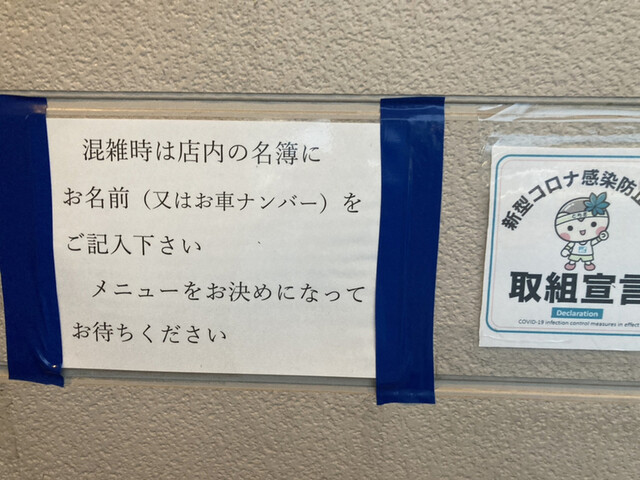 混雑時は店内の名簿に
お名前（又はお車ナンバー）を
ご記入下さい
メニューをお決めになって
お待ちください
新型コロナ感染防止
取組宣言
Declaration
COVID-19 infection control measures in effect